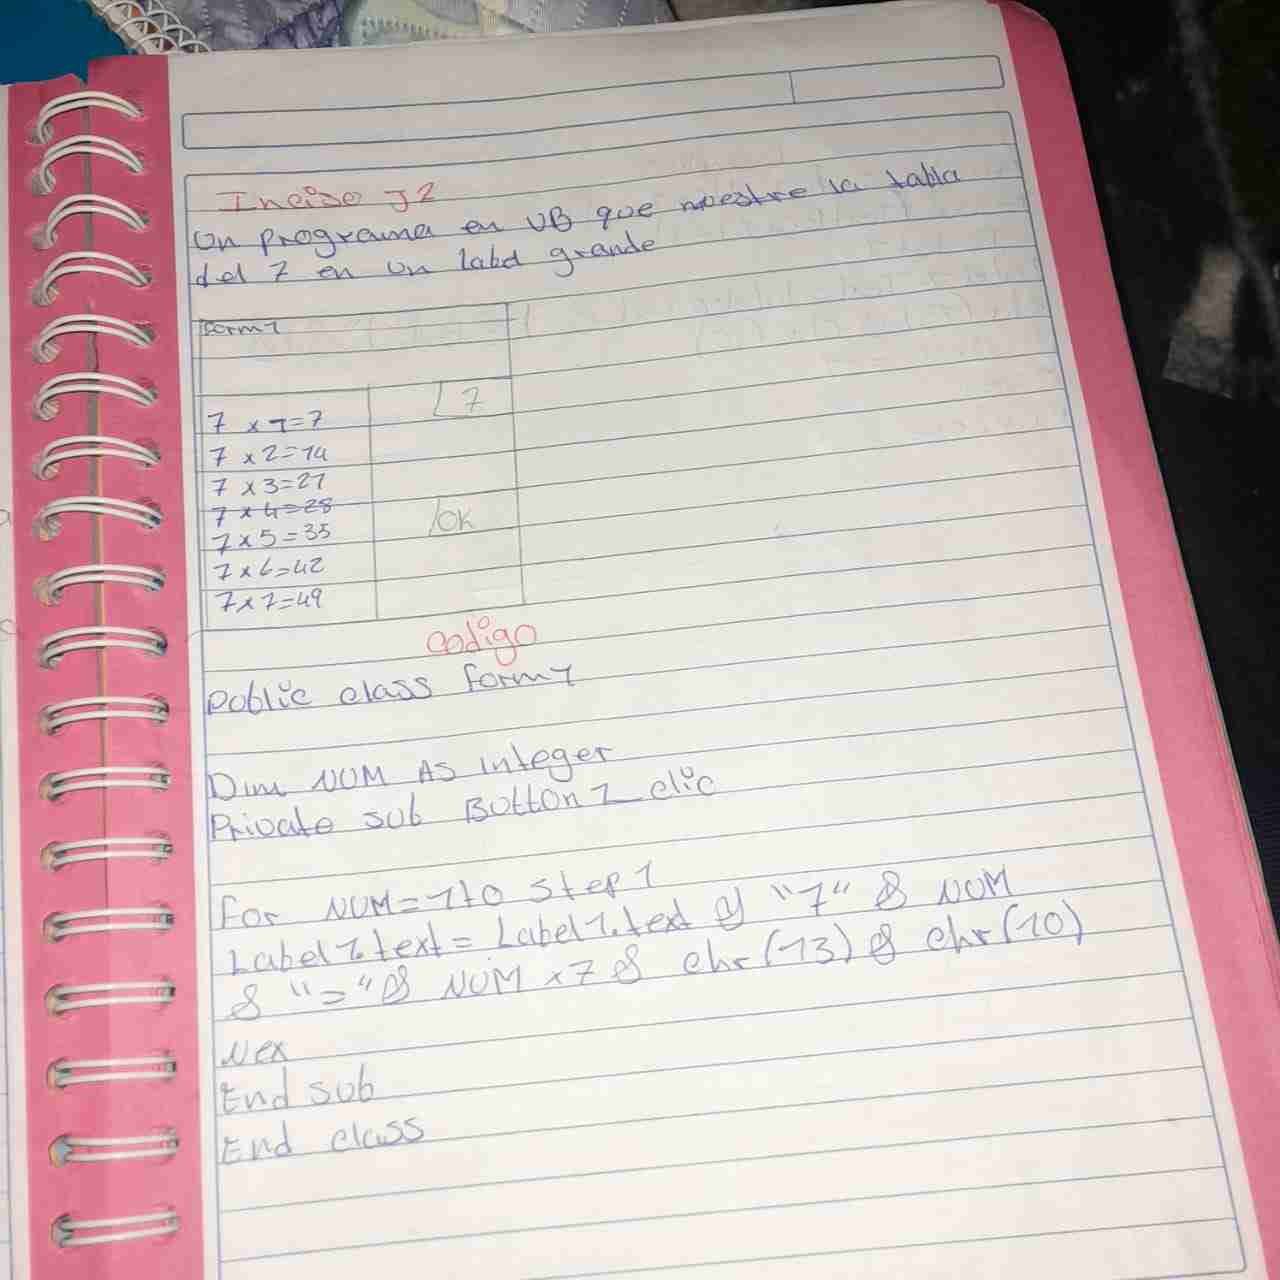 Inciso J2
Un programa en VB que muestre la tabla
del 7 en un label grande
Form1
7
7 x 1=7
7 x 2=14
7 x 3=21
7 x 4=28
OK
7 x 5=35
7 x 6=42
7 x 7=49
codigo
Public class form1
Dim NUM As integer
Private sub Button1_clic
For NUM=1 to Step 1
Label1.text = Label1.text & "7" & NUM
& "=" & NUM x 7 & chr(13) & chr(10)
Nex
End sub
End class